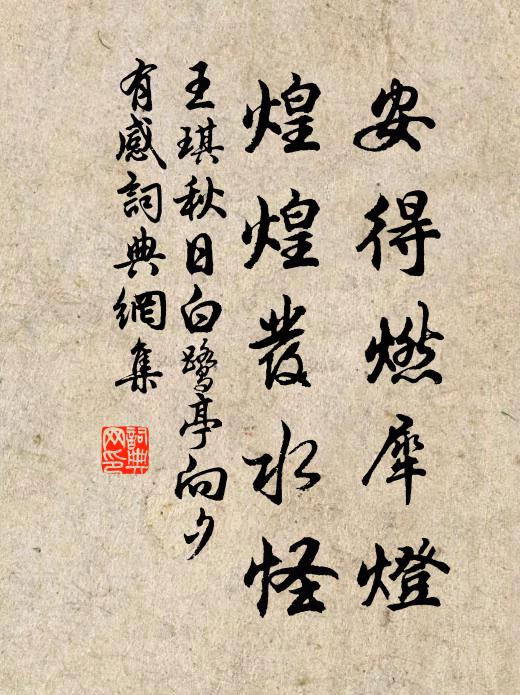 安得燃犀燈
煌煌發水怪
王琪秋日白鷺亭向夕
有感詞典網集
詞典
网印